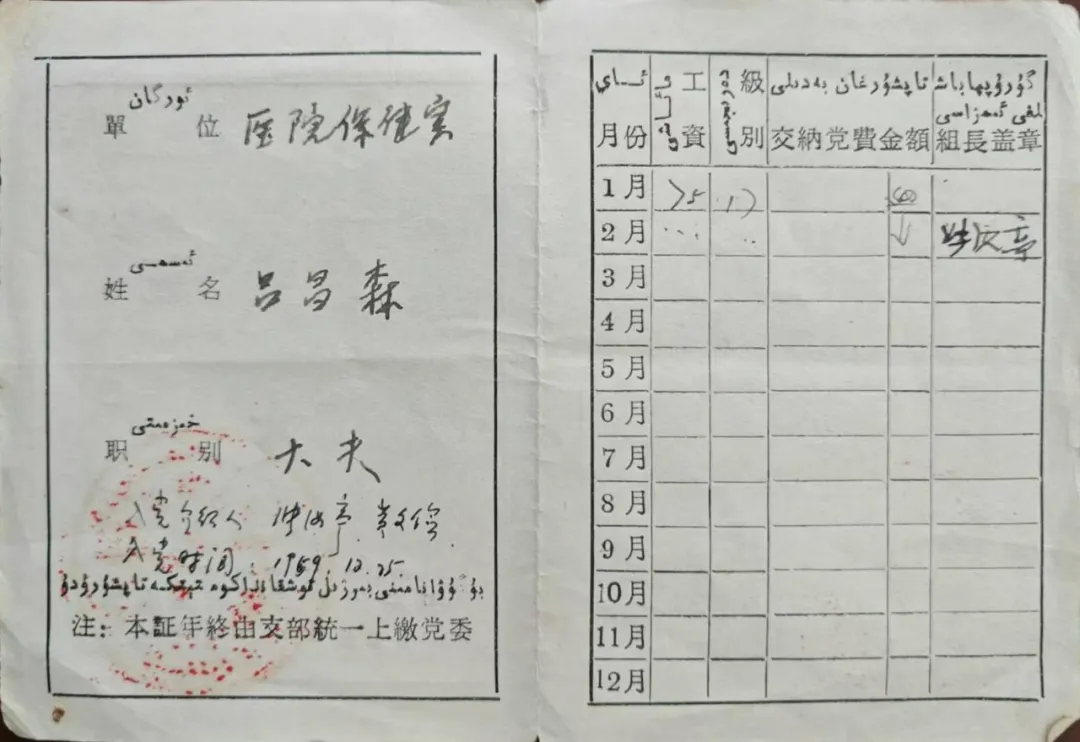 ئورگان
單 位 医院保健室
ئەسىمى
姓 名 吕昌森
خىزمىتى
职 别 大夫
入党介绍人
入党时间：1959.12.25
注：本証年終由支部統一上繳党委
ئاي
月份 工資 級別 交納党費金額 組長盖章
تاپشۇرغان بەدىلى
گۇرۇپپا باش
لىقى ئىمزاسى
1月 75 17
2月
3月
4月
5月
6月
7月
8月
9月
10月
11月
12月